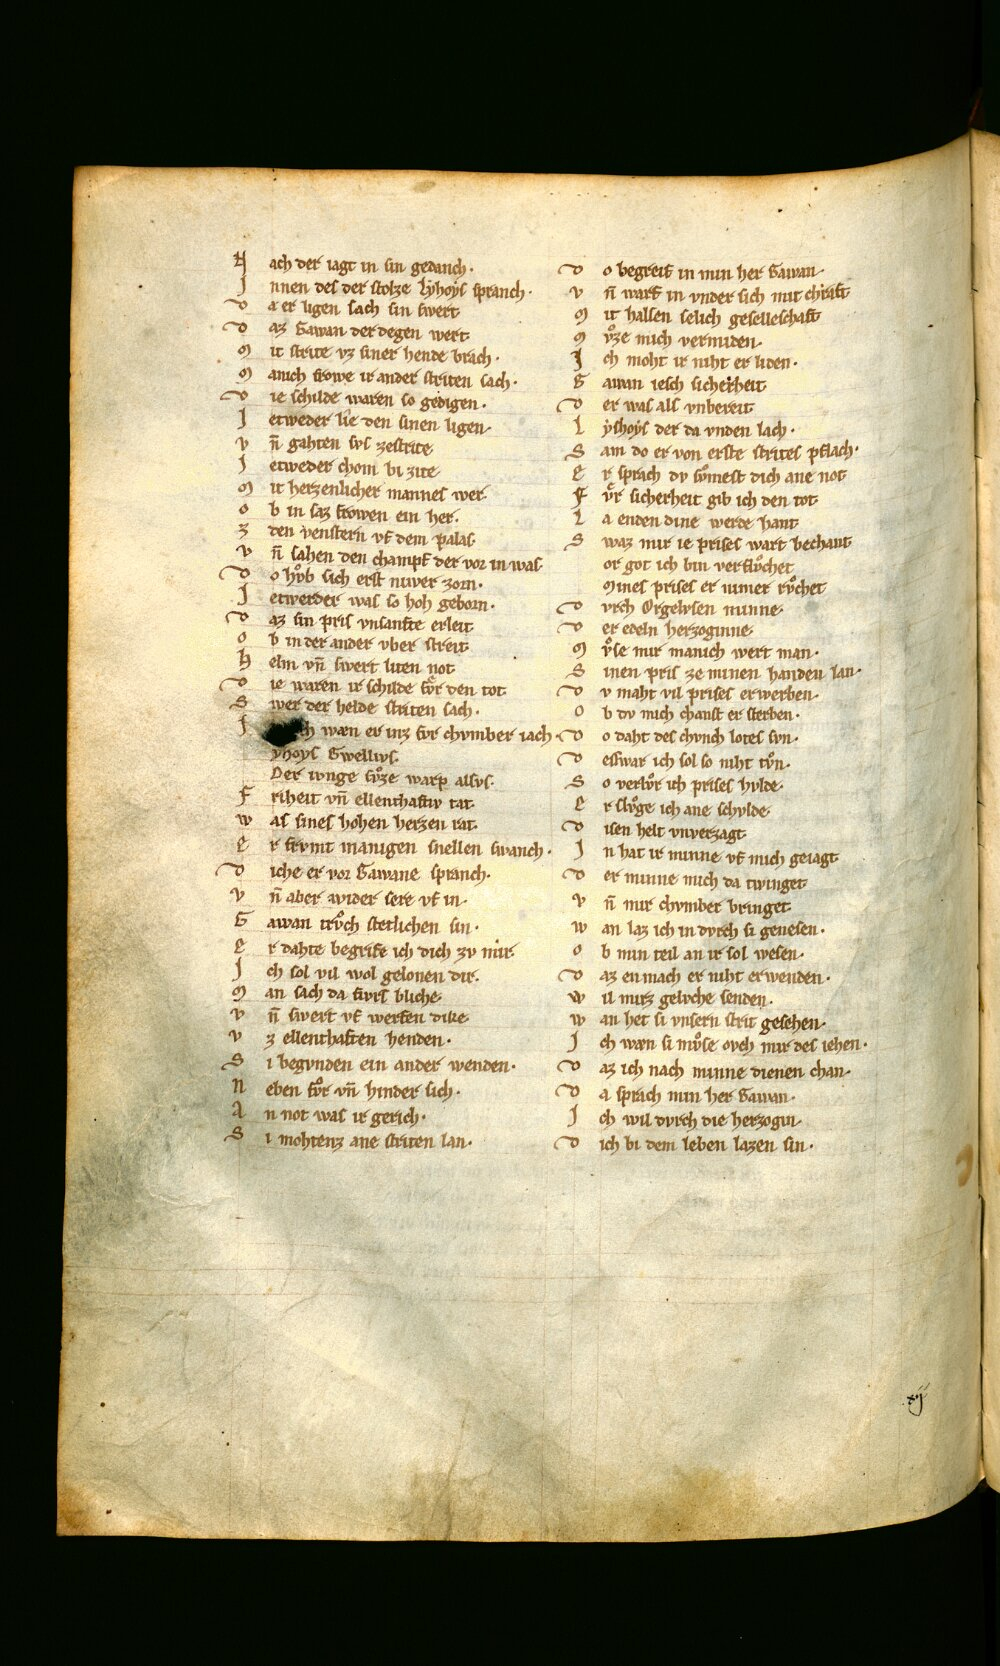 N ach der iagt in sin gedanch·
J nnen des der stolze Lyhoys spranch·
D a er ligen sach sin swert
D az Gawan der degen wert
M it strite vz siner hende brach·
M anich frowe ir ander striten sach·
D ie schilde waren so gedigen·
J etweder lie den sinen ligen·
V ñ gahten svs zestrite
J etweder chom bi zite
M it herzenlicher mannes wer·
O b in saz frowen ein her·
Z den venstern vf dem palas·
V ñ sahen den champf der vor in was·
D o hvͦb sich erst niwer zorn·
J etwerder was so hoh geborn·
D az sin pris vnsanfte erleit
O b in der ander vber streit
H elm vñ swert liten not
D ie waren ir schilde fvͤr den tot
S wer der helde striten sach·
J ch wæn er inz fvr chvmber iach·
yhoys Gwellivs·
Der ivnge svͦze warp alsvs·
F riheit vñ ellenthaftiv tat
W as sines hohen herzen rat·
E r frvmt manigen snellen swanch·
D iche er vor Gawane spranch·
V ñ aber wider sere vf in·
G awan trvͦch stetlichen sin·
E r dahte begrife ich dich zv mir·
J ch sol vil wol gelonen dir·
M an sach da fivrs bliche
V ñ swert vf werfen dike
V z ellenthaften henden·
S i begvnden ein ander wenden·
N eben fvͤr vñ hinder sich·
A n not was ir gerich·
S i mohtenz ane striten lan·
D o begreif in min her Gawan·
V ñ warf in vnder sich mit chraft
M it halsen selich geselleschaft
M vͦze mich vermiden·
J ch moht ir niht er liden·
G awan iesch sicherheit
D er was als vnbereit
L yshoys der da vnden lach·
S am do er von erste strites pflach·
E r sprach dv svͦmest dich ane not
F vͤr sicherheit gib ich den tot
L a enden dine werde hant
S waz mir ie prises wart bechant
or got ich bin verflvͦchet
Mines prises er nimer rvͦchet
D vrch Orgelvsen minne·
D er edeln herzoginne·
M vͦse mir manich wert man·
S inen pris ze minen handen lan·
D v maht vil prises erwerben·
O b dv mich chanst er sterben·
D o daht des chvnch lotes svn·
D eswar ich sol so niht tvͦn·
S o verlvͤr ich prises hvlde·
E r slvͤge ich ane schvlde·
D isen helt vnverzagt
J n hat ir minne vf mich geiagt
D er minne mich da twinget
V ñ mir chvmber bringet
W an laz ich in dvrch si genesen·
O b min teil an ir sol wesen·
D az enmach er niht erwenden·
W il mirz gelvche senden·
W an het si vnsern strit gesehen·
J ch wæn si mvͦse ovch mir des iehen·
D az ich nach minne dienen chan·
D a sprach min her Gawan·
J ch wil dvrch die herzogin·
D ich bi dem leben lazen sin·